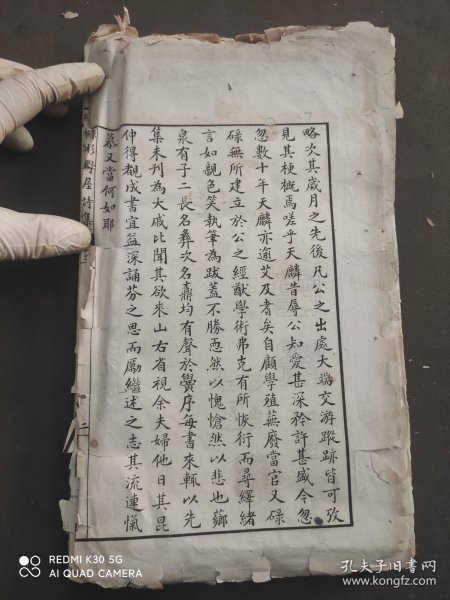 略次其歲月之先後凡公之出處大端交游蹤跡皆可攷
見其梗概焉嗟乎天麟昔辱公知愛甚深矜許甚盛今忽
忽數十年天麟亦逾艾及耆矣自顧學殖蕪廢當官又碌
碌無所建立於公之經猷學術弗克有所恢衍而尋繹緒
言如親色笑執筆為跋蓋不勝恧然以愧愴然以悲也薌
泉有子二長名彝次名鼒均有聲於黌序每書來輒以先
集未刊為大戚比聞其欲來山右省視余夫婦他日其昆
仲得覩成書宜益深誦芬之思而勵繼述之志其流連愾
慕又當何如耶
野屋詩集
二
REDMI K30 5G
AI QUAD CAMERA
孔夫子旧书网
www.kongfz.com